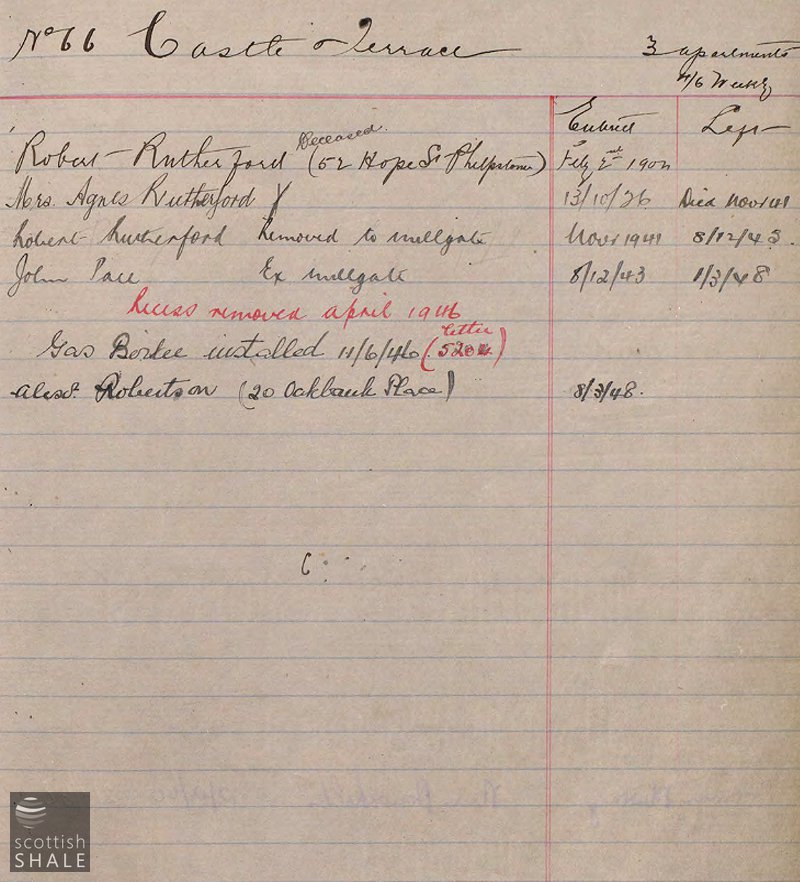 No 66 Castle Terrace
3 apartments
4/6 Weekly
Entered Left
Deceased
Robert Rutherford (52 Hope St Philpstoun) Feby 2nd 1904
Mrs. Agnes Rutherford 13/10/26 Died Novr 41
Robert Rutherford Removed to Millgate Novr 1941 8/12/43.
John Pace Ex Millgate 8/12/43 1/3/48
Recess removed april 1946
Gas Boiler installed 11/6/46 (letter 5204)
Alexr. Robertson (20 Oakbank Place) 8/3/48.
scottish
SHALE